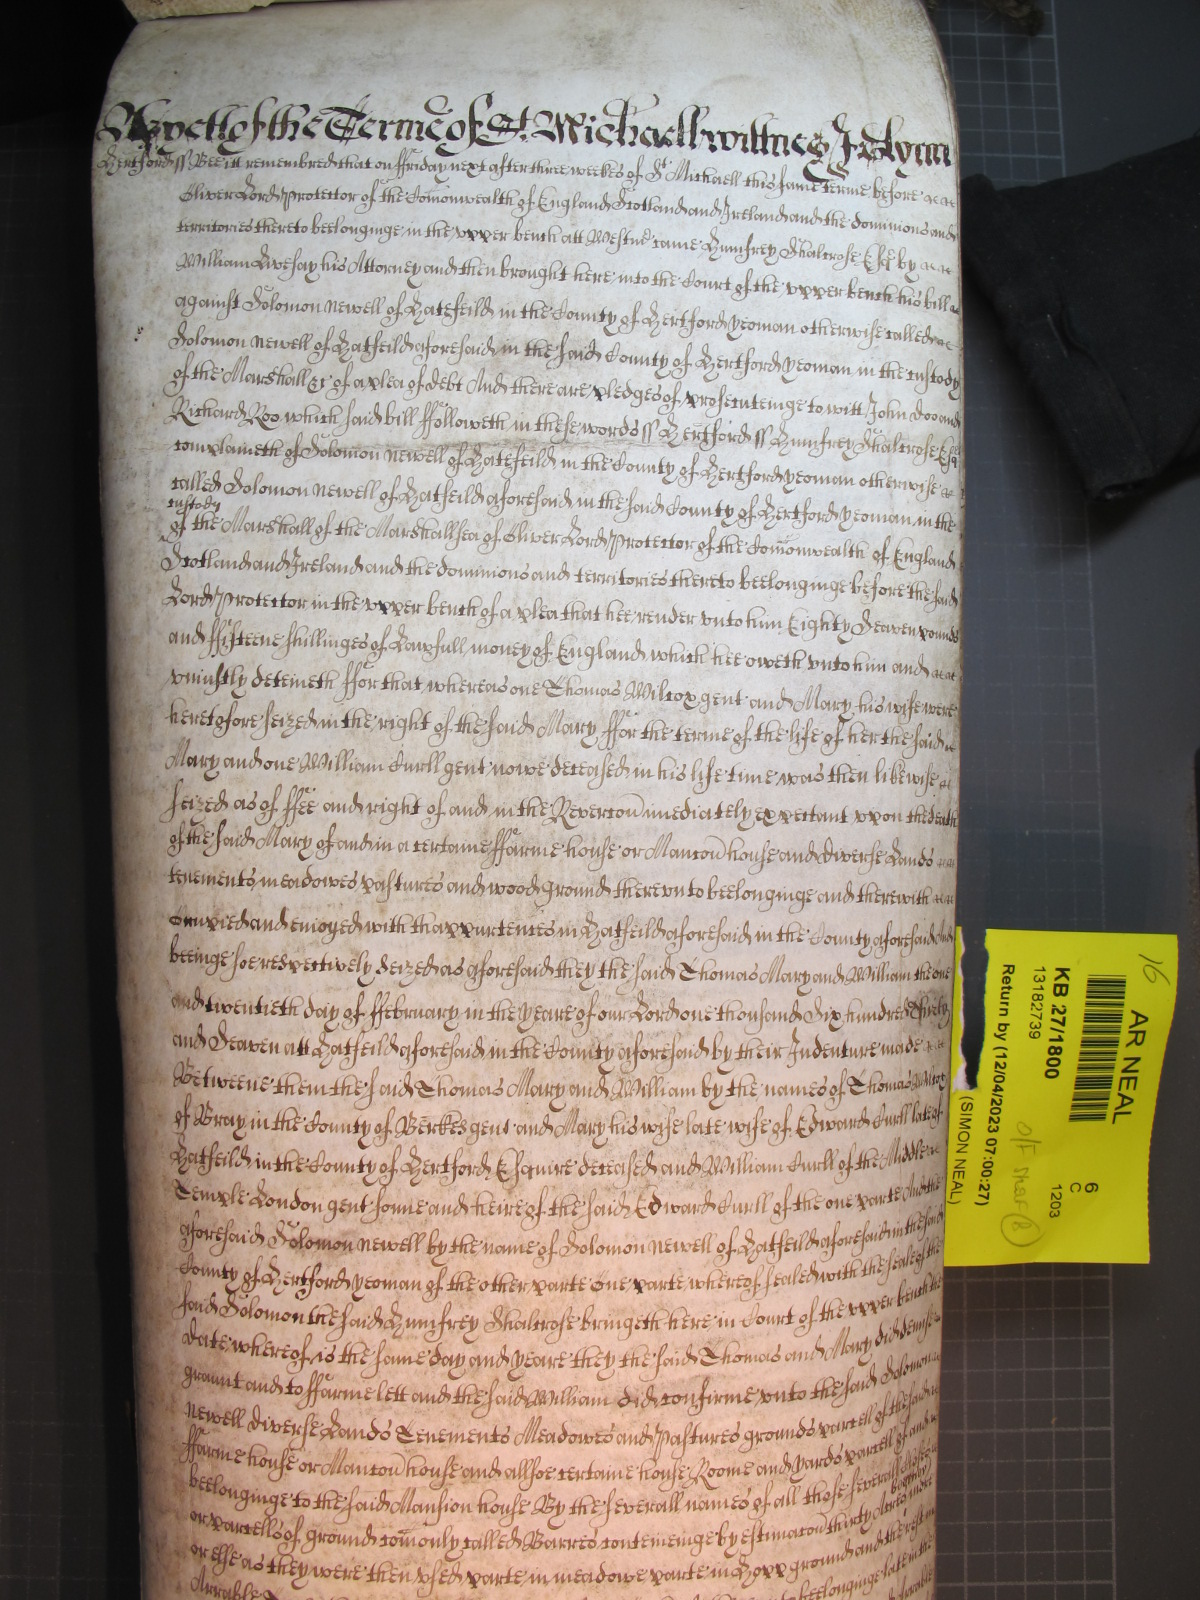 Yet of the Terme of St. Michaell wittnes J Glynn
Hertford ss Bee itt remembred that on ffriday next after three weekes of St Michaell this same terme before
Oliver Lord Protector of the Comonwealth of England Scotland and Ireland and the dominions and
territories thereto beelonginge in the upper bench att Westmr came Humfrey Shalcrose Esqr by
William Livesay his Attorney and then brought here into the Court of the upper bench his bill
against Solomon Newell of Hatefeild in the County of Hertford yeoman otherwise called
Solomon Newell of Hatfeild aforesaid in the said County of Hertford yeoman in the custody
of the Marshall &c of a plea of debt And there are pledges of prosecuteinge to witt John Doo and
Richard Roo which said bill ffolloweth in these words ss Hertford ss Humfrey Shalcrose Esqr
complaineth of Solomon Newell of Hatefeild in the County of Hertford yeoman otherwise
called Solomon Newell of Hatfeild aforesaid in the said County of Hertford yeoman in the
custody
of the Marshall of the Marshallsea of Oliver Lord Protector of the Comonwealth of England
Scotland and Ireland and the dominions and territories thereto beelonginge before the said
Lord Protector in the upper bench of a plea that hee render unto him Eighty Seaven pounds
and ffifteene shillinges of Lawfull money of England which hee oweth unto him and
uniustly deteineth ffor that whereas one Thomas Wilcox gent and Mary his wife were
heretofore seized in the right of the said Mary ffor the terme of the life of her the said
Mary and one William Curll gent nowe deceased in his life time was then likewise
seized as of ffee and right of and in the Revercon imediately expectant upon the death
of the said Mary of and in a certaine ffarme house or Mancon house and diverse Lands
tenements meadowes pastures and wood ground thereunto beelonginge and therewith
occupied and enioyed with thappurtences in Hatfeild aforesaid in the County aforesaid And
beeinge soe respectively Seized as aforesaid they the said Thomas Mary and William the one
and twentieth day of ffebruary in the yeare of our Lord one thousand Six hundred Thirty
and Seaven att Hatfeild aforesaid in the County aforesaid by their Indenture made
Betweene them the said Thomas Mary and William by the names of Thomas Wilcox
of Bray in the County of Berkes gent and Mary his wife late wife of Edward Curll late of
Hatfeild in the County of Hertford Esquire deceased and William Curll of the Middle
Temple London gent sonne and heire of the said Edward Curll of the one parte And the
aforesaid Solomon Newell by the name of Solomon Newell of Hatfeild aforesaid in the said
County of Hertford yeoman of the other parte One parte whereof sealed with the seale of the
said Solomon the said Humfrey Shalcrose bringeth here in Court of the upper bench the
date whereof is the same day and yeare they the said Thomas and Mary did demise
graunt and to ffarme lett and the said William did confirme unto the said Solomon
Newell diverse Lands Tenements Meadowes and Pastures grounds parcell of the said
ffarme house or Mancon house and allsoe certaine house Roome and yards parcell of and
beelonginge to the said Mansion house By the severall names of all those severall closes
or parcells of ground comonly called Barres conteineinge by estimacon thirty Acres more
or else as they were then used parte in meadowe parte in Hopp ground and the rest in
Arrable
16
AR NEAL
KB 27/1800
13182739
6
C
1203
Return by (12/04/2023 07:00:27)
(SIMON NEAL)